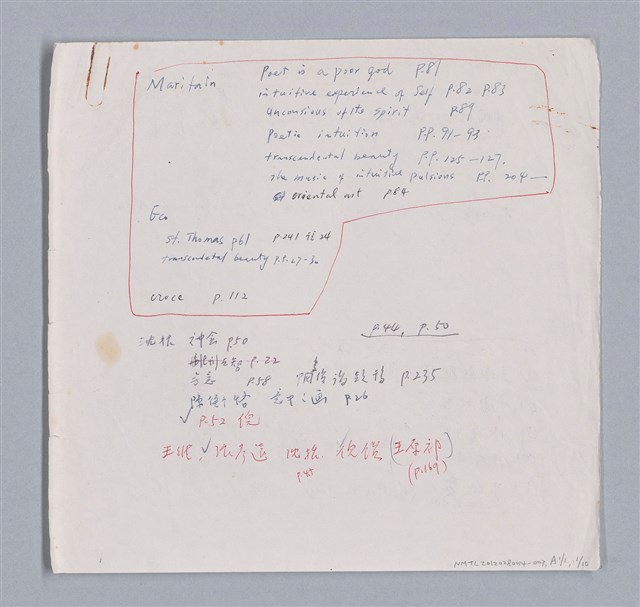 Maritain Poet is a poor god P.81
intuitive experience of Self P.82 P.83
Unconsious of its spirit P.89
Poetic intuition P.P. 91-93
transcendental beauty P.P. 125-127,
The music of intuitive pulsions P.P. 204—
oriental art p84
Eco
St. Thomas p61 p.241 註24
transcendetal beauty P.P. 27-30
croce P. 112
P.44, P.50
沈括 神会 p50
P.22
P.58 P.235
陳衡恪 意中之画 P26
✓ P.52 倪
王維, ✓ 沈括, 倪瓚 (王原祁)
p.45 (p.169)
NMTL20120280014-003, A1/1, 1/10